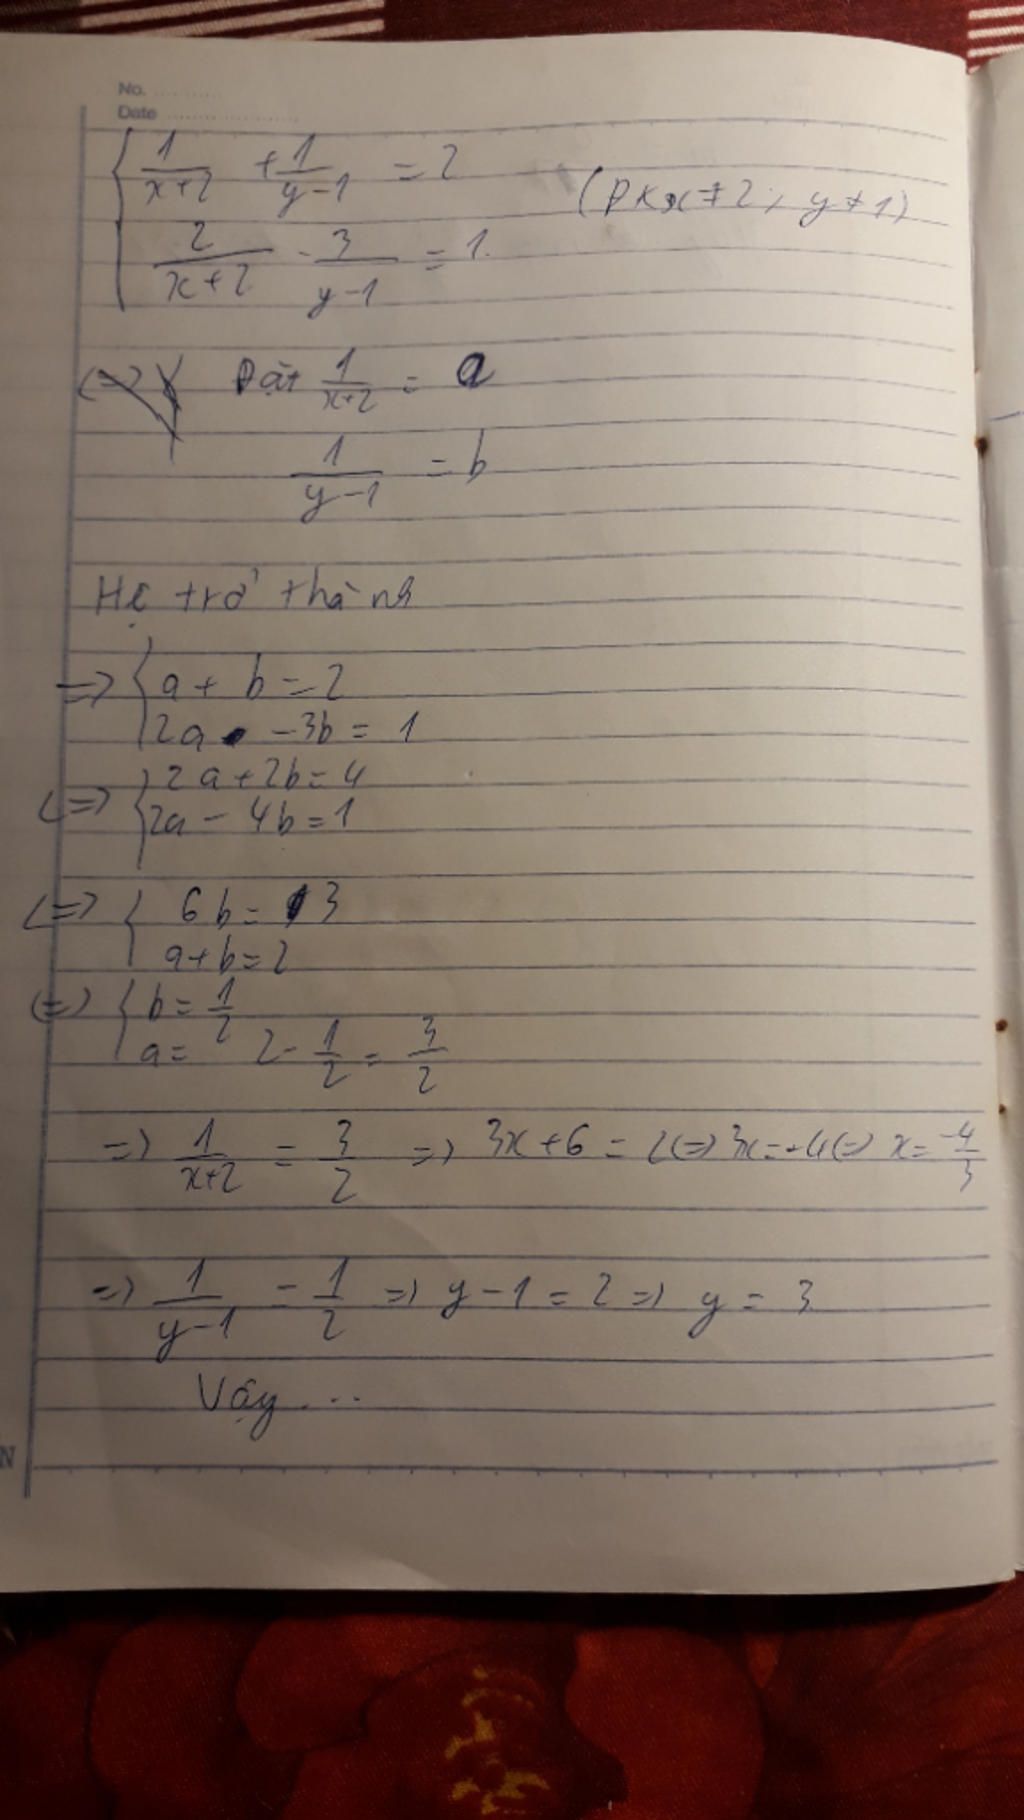 No. ..........
Date ....................
1/(x+2) + 1/(y-1) = 2
(ĐK x ≠ 2; y ≠ 1)
2/(x+2) - 3/(y-1) = 1.
Đặt 1/(x+2) = a
1/(y-1) = b
Hệ trở thành
=> { a + b = 2
2a - 3b = 1
<=> { 2a + 2b = 4
2a - 4b = 1
<=> { 6b = 3
a+b = 2
<=> { b = 1/2
a = 2 - 1/2 = 3/2
=> 1/(x+2) = 3/2 => 3x+6 = 2 <=> 3x = -4 <=> x = -4/3
=> 1/(y-1) = 1/2 => y-1 = 2 => y = 3
Vậy ...
N